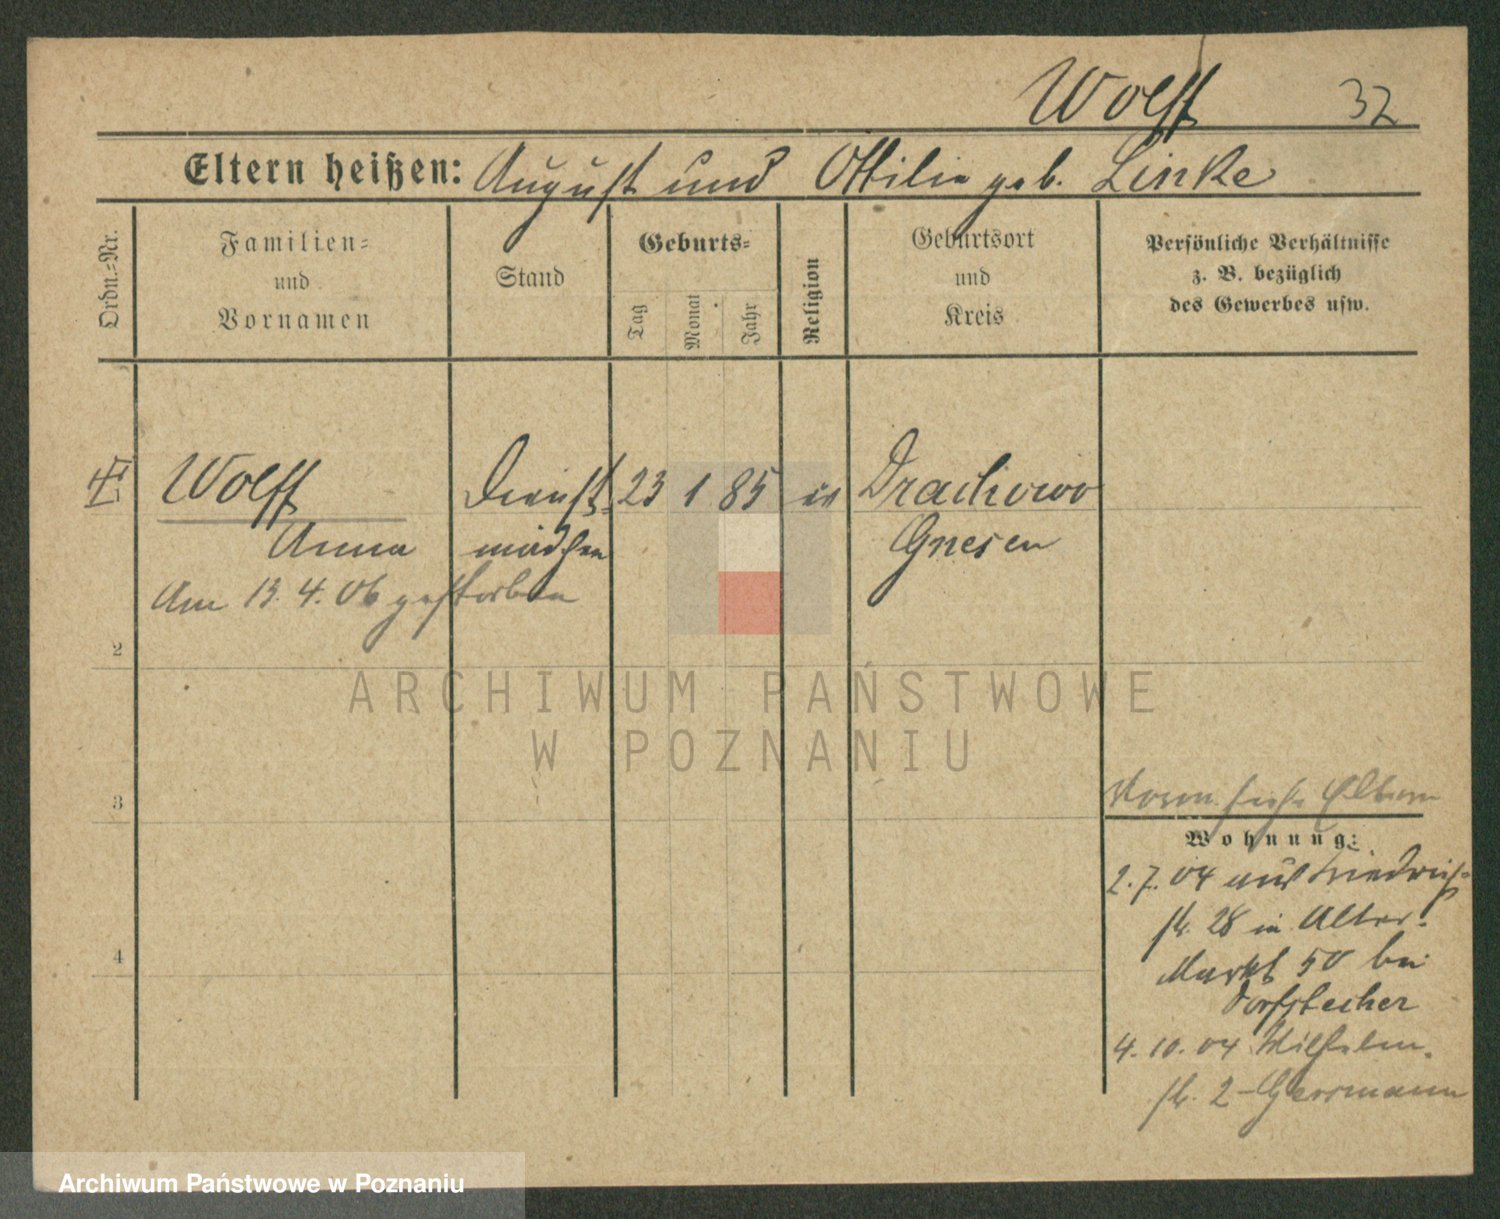 Wolff 32
Eltern heißen: August und Ottilie geb. Linke
Ordn.=Nr.
Familien=
und
Vornamen
Stand
Geburts=
Tag
Monat
Jahr
Religion
Geburtsort
und
Kreis
Persönliche Verhältnisse
z. B. bezüglich
des Gewerbes usw.
Wolff Dienst 23 1 85 ev Drachowo
Anna mädchen Gnesen
Am 13. 4. 06 gestorben
2
ARCHIWUM PAŃSTWOWE
W POZNANIU
3
Vorm. siehe Eltern
Wohnung:
2. 7. 04 aus Friedrich=
str. 28 in Alter
Markt 50 bei
4
Dorfstecher
4. 10. 04 Wilhelm
str. 2 - Gerrmann
Archiwum Państwowe w Poznaniu